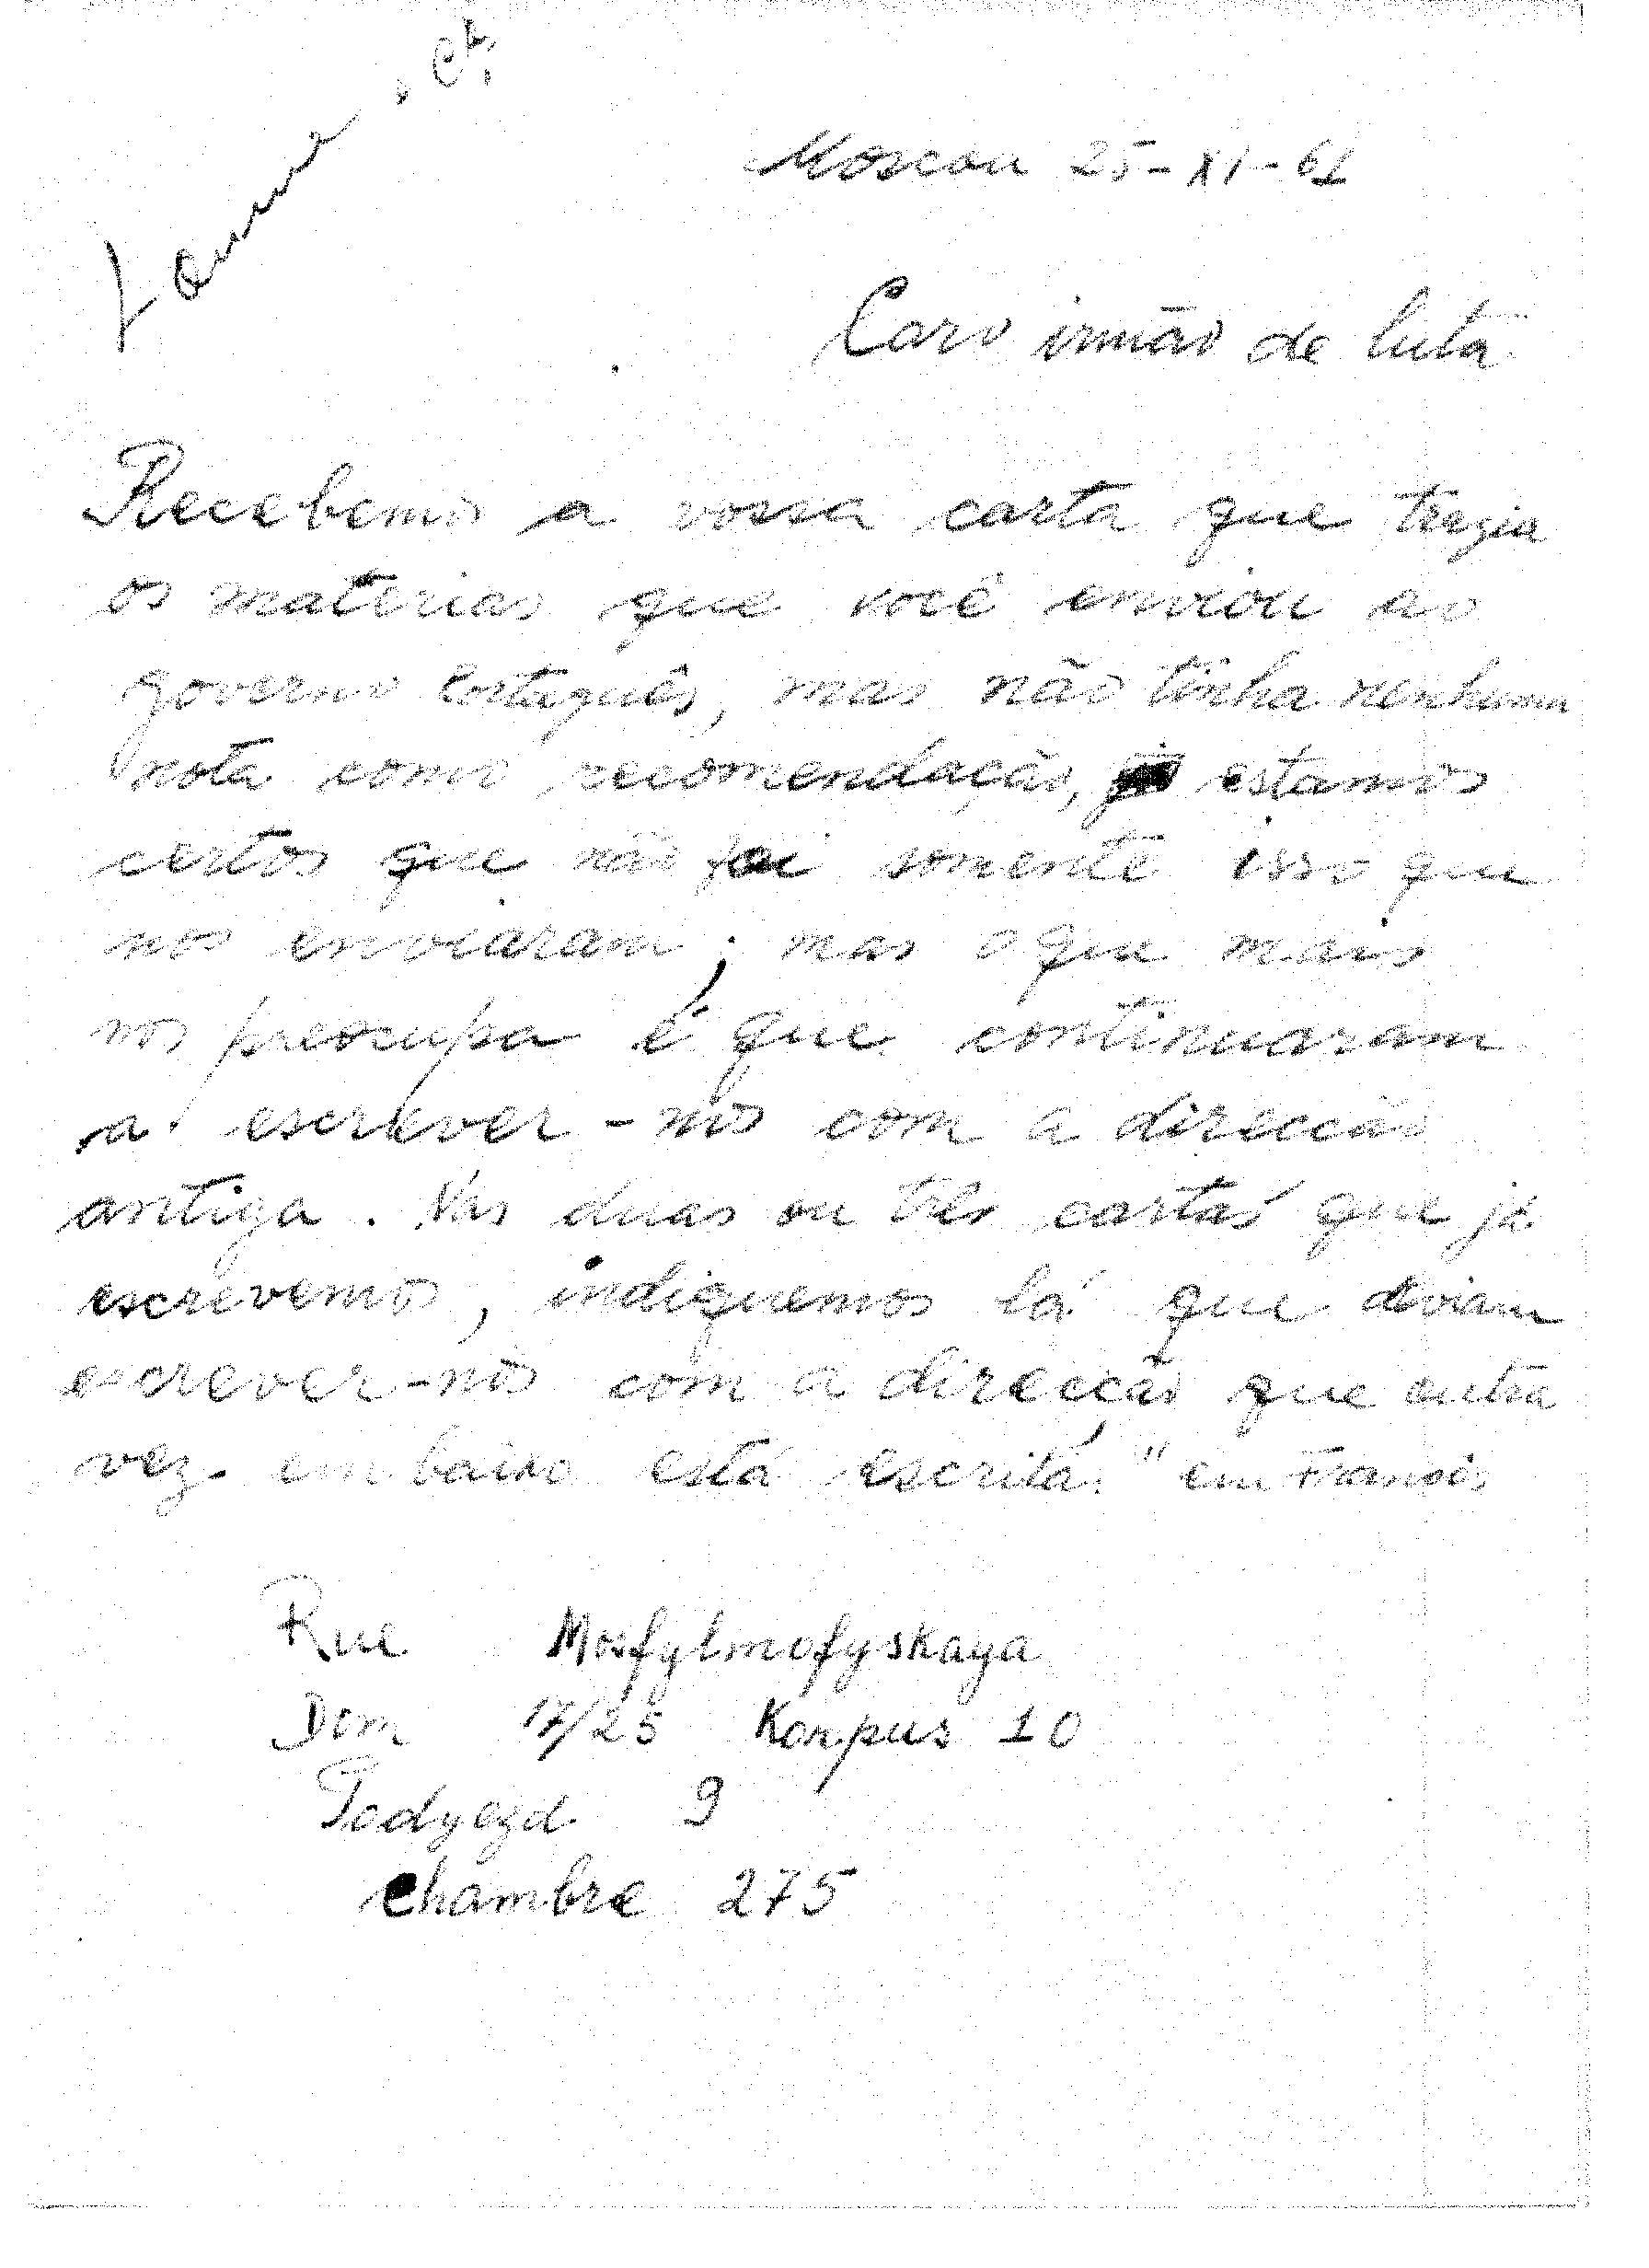 Moscou 25-XI-61
Caro irmão de luta
Recebemos a vossa carta que trazia
os materias que você enviou ao
governo Português, mas não tinha nenhuma
nota como recomendação, estamos
certos que não foi somente isso que
nos enviaram; mas o que mais
nos preocupa é que continuaram
a escrever-nos com a direccão
antiga. Nas duas ou três cartas que já
escrevemos, indiquemos lá que deviam
escrever-nos com a direccão que outra
vez em baixo está escrita. "em Francês
Rue Mosfylmofyskaya
Dom 17/25 Korpus 10
Podyezd 9
Chambre 275